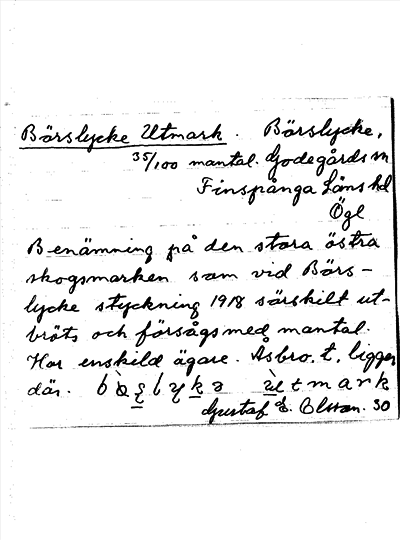 Börslycke Utmark. Börslycke,
35/100 mantal. Godegårds sn
Finspånga Läns hd
Ögl
Benämning på den stora östra
skogsmarken som vid Börs-
lycke styckning 1918 särskilt ut-
bröts och försågs med mantal.
Har enskild ägare. Åsbro, t, ligger
där.
Gustaf E. Olsson. 30